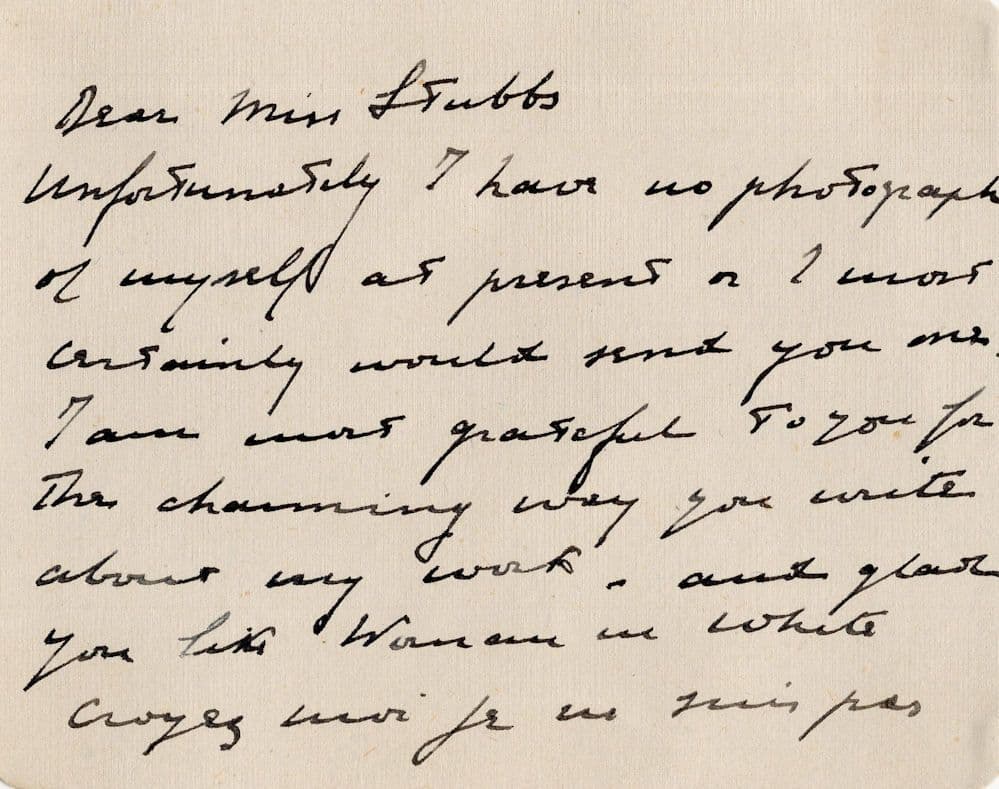 Dear Miss Stubbs
Unfortunately I have no photograph
of myself at present or I most
certainly would send you one.
I am most grateful to you for
the charming way you write
about my work. and glad
you like Woman in White
Croyez moi je ne suis pas